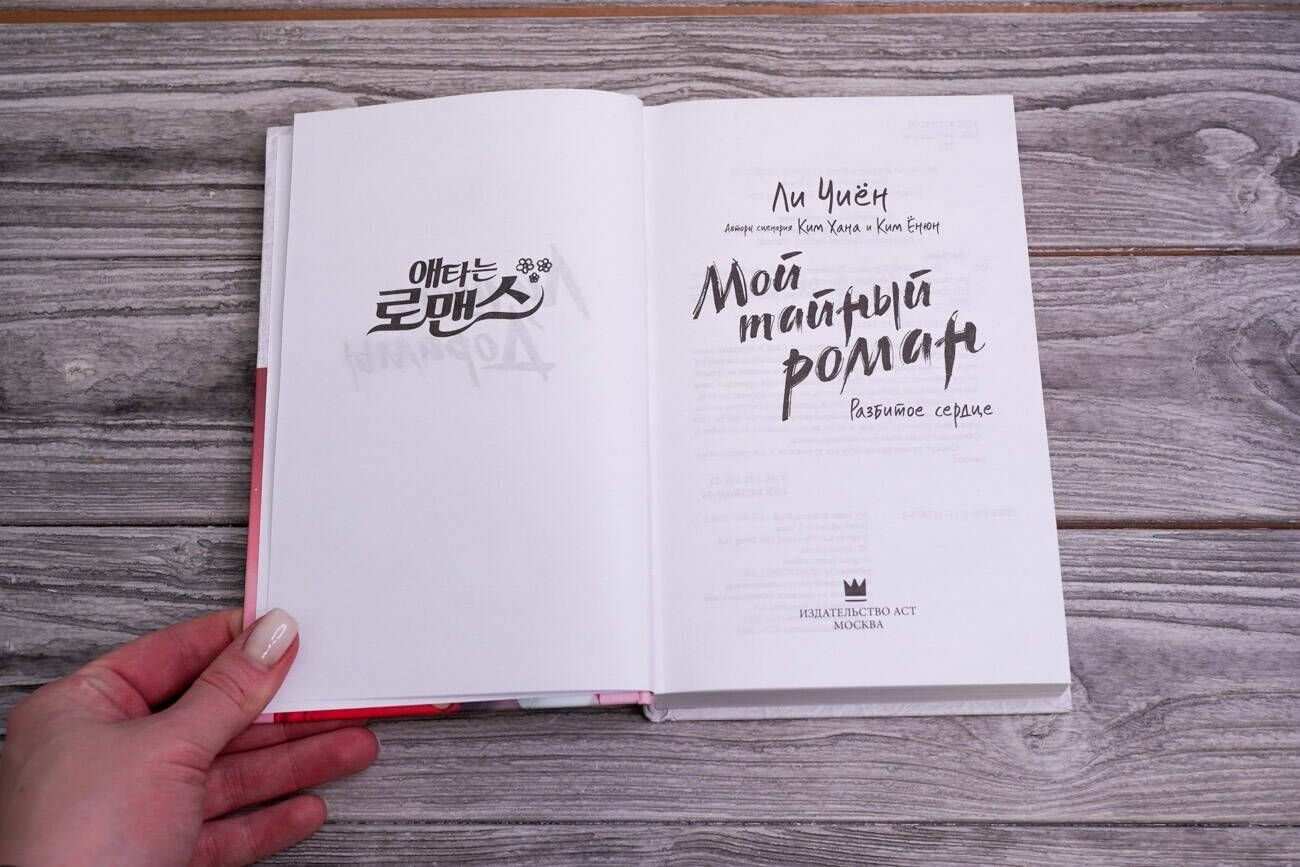 애타는
로맨스
Ли Чиён
Авторы сценария Ким Хана и Ким Ёнюн
Мой
тайный
роман
Разбитое сердце
ИЗДАТЕЛЬСТВО АСТ
МОСКВА